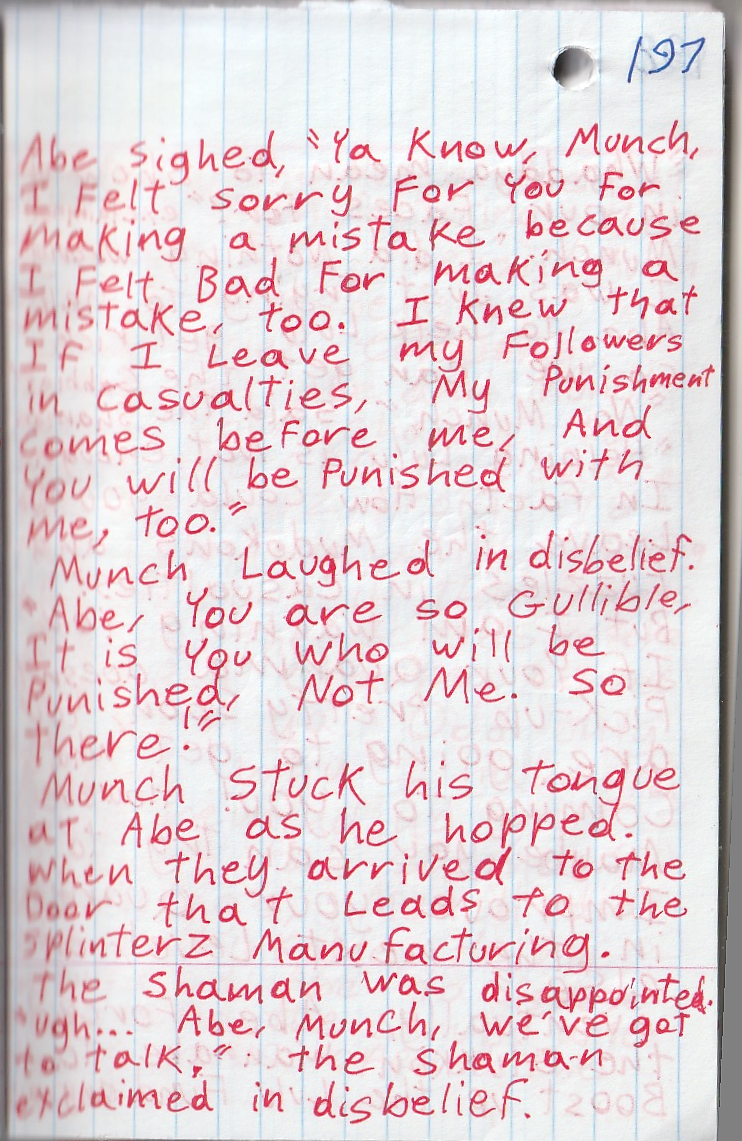 197
Abe sighed, "Ya Know, Munch,
I Felt sorry For You For
making a mistake because
I Felt Bad For making a
mistake, too. I knew that
IF I Leave my Followers
in casualties, My Punishment
comes before me, And
You will be Punished with
me, too."
Munch Laughed in disbelief.
"Abe, You are so Gullible,
It is You who will be
Punished, Not Me. So
there!"
Munch Stuck his tongue
at Abe as he hopped.
When they arrived to the
Door that Leads to the
Splinterz Manufacturing.
The Shaman was disappointed.
"Ugh... Abe, Munch, we've got
to talk," the Shaman
exclaimed in disbelief.